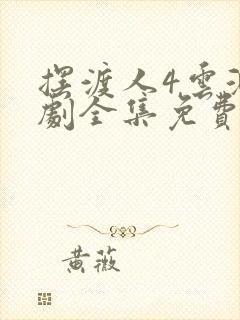 摆渡人4雲
劇全集免費
黄薇